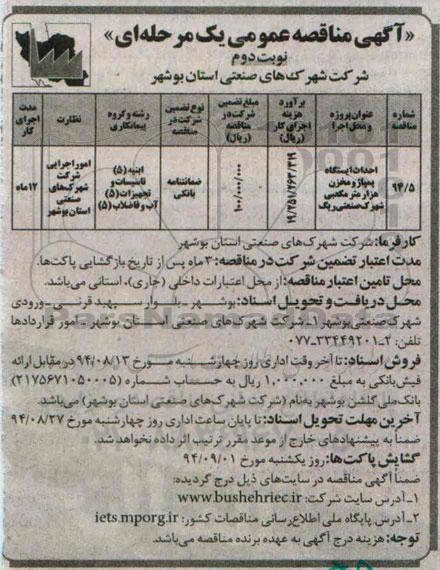 «آگهی مناقصه عمومی یک مرحله‌ای»
نوبت دوم
شرکت شهرک‌های صنعتی استان بوشهر
شماره مناقصه
عنوان پروژه و محل اجرا
برآورد هزینه اجرای کار (ریال)
مبلغ تضمین شرکت در مناقصه (ریال)
نوع تضمین شرکت در مناقصه
رشته و گروه پیمانکاری
نظارت
مدت اجرای کار
۹۴/۵
احداث ایستگاه پمپاژ و مخزن هزار متر مکعبی شهرک صنعتی ریگ
۱۹/۲۵۱/۴۶۳/۳۱۹
۱۰۰/۰۰۰/۰۰۰
ضمانتنامه بانکی
ابنیه (۵) تاسیسات و تجهیزات (۵) آب و فاضلاب (۵)
امور اجرایی شرکت شهرک‌های صنعتی استان بوشهر
۱۲ماه
کارفرما: شرکت شهرک‌های صنعتی استان بوشهر
مدت اعتبار تضمین شرکت در مناقصه: ۳ ماه پس از تاریخ بازگشایی پاکت‌ها.
محل تامین اعتبار مناقصه: از محل اعتبارات داخلی (جاری)، استانی می‌باشد.
محل دریافت و تحویل اسناد: بوشهر ـ بلوار سپهبد قرنی ـ ورودی
شهرک صنعتی بوشهر۱ ـ شرکت شهرک‌های صنعتی استان بوشهر ـ امور قراردادها
تلفن: ۲ـ۳۳۴۴۹۲۰۱ـ۰۷۷
فروش اسناد: تا آخر وقت اداری روز چهارشنبه مورخ ۹۴/۰۸/۱۳ در مقابل ارائه
فیش بانکی به مبلغ ۱.۰۰۰.۰۰۰ ریال به حساب شماره (۲۱۷۵۶۷۱۰۵۰۰۰۵)
بانک ملی گلشن بوشهر به‌نام (شرکت شهرک‌های صنعتی استان بوشهر) می‌باشد.
آخرین مهلت تحویل اسناد: تا پایان ساعت اداری روز چهارشنبه مورخ ۹۴/۰۸/۲۷
ضمناً به پیشنهادهای خارج از موعد مقرر ترتیب اثر داده نخواهد شد.
گشایش پاکت‌ها: روز یکشنبه مورخ ۹۴/۰۹/۰۱
ضمناً آگهی مناقصه در سایت‌های ذیل درج گردیده:
۱ـ آدرس سایت شرکت: www.bushehriec.ir
۲ـ آدرس پایگاه ملی اطلاع‌رسانی مناقصات کشور: iets.mporg.ir
توجه: هزینه درج آگهی به عهده برنده مناقصه می‌باشد.